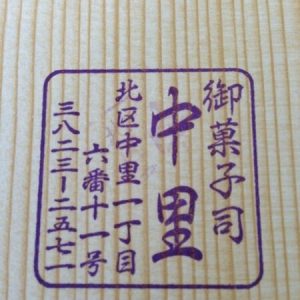 御菓子司
中里
北区中里一丁目
六番十一号
三八二三ー二五七一